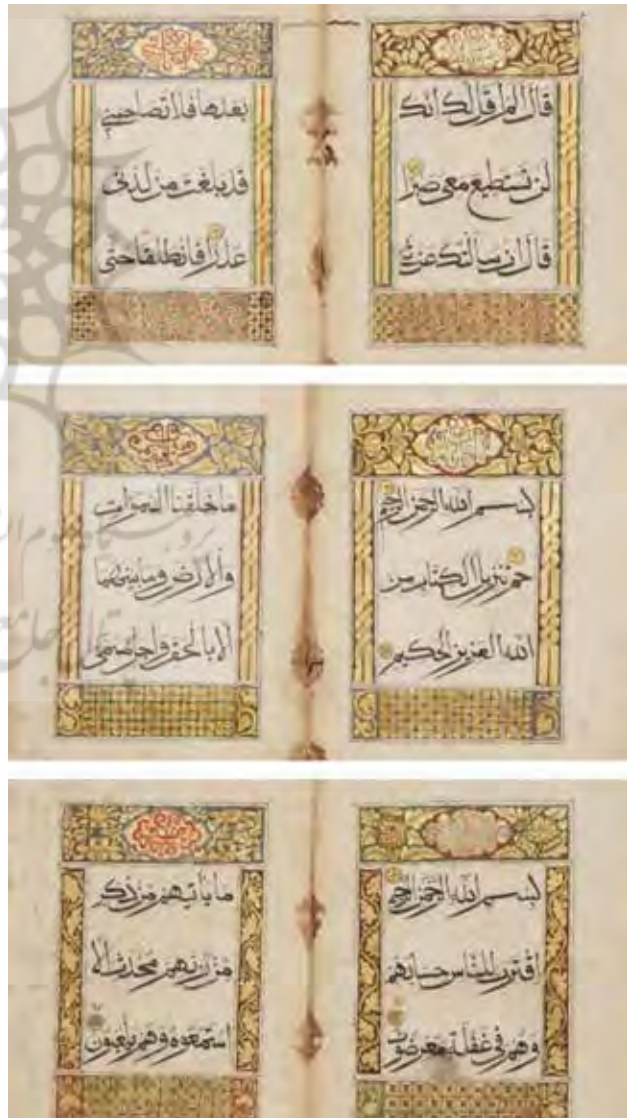 قال الم اقل لك انك
لن تستطيع معي صبرا
قال ان سالتك عن شي
بعدها فلا تصاحبني
قد بلغت من لدني
عذرا فانطلقا حتى
بسم الله الرحمن الرحيم
حم تنزيل الكتاب من
الله العزيز الحكيم
ما خلقنا السموات
والارض وما بينهما
الا بالحق واجل مسمى
بسم الله الرحمن الرحيم
اقترب للناس حسابهم
وهم في غفلة معرضون
ما ياتيهم من ذكر
من ربهم محدث الا
استمعوه وهم يلعبون